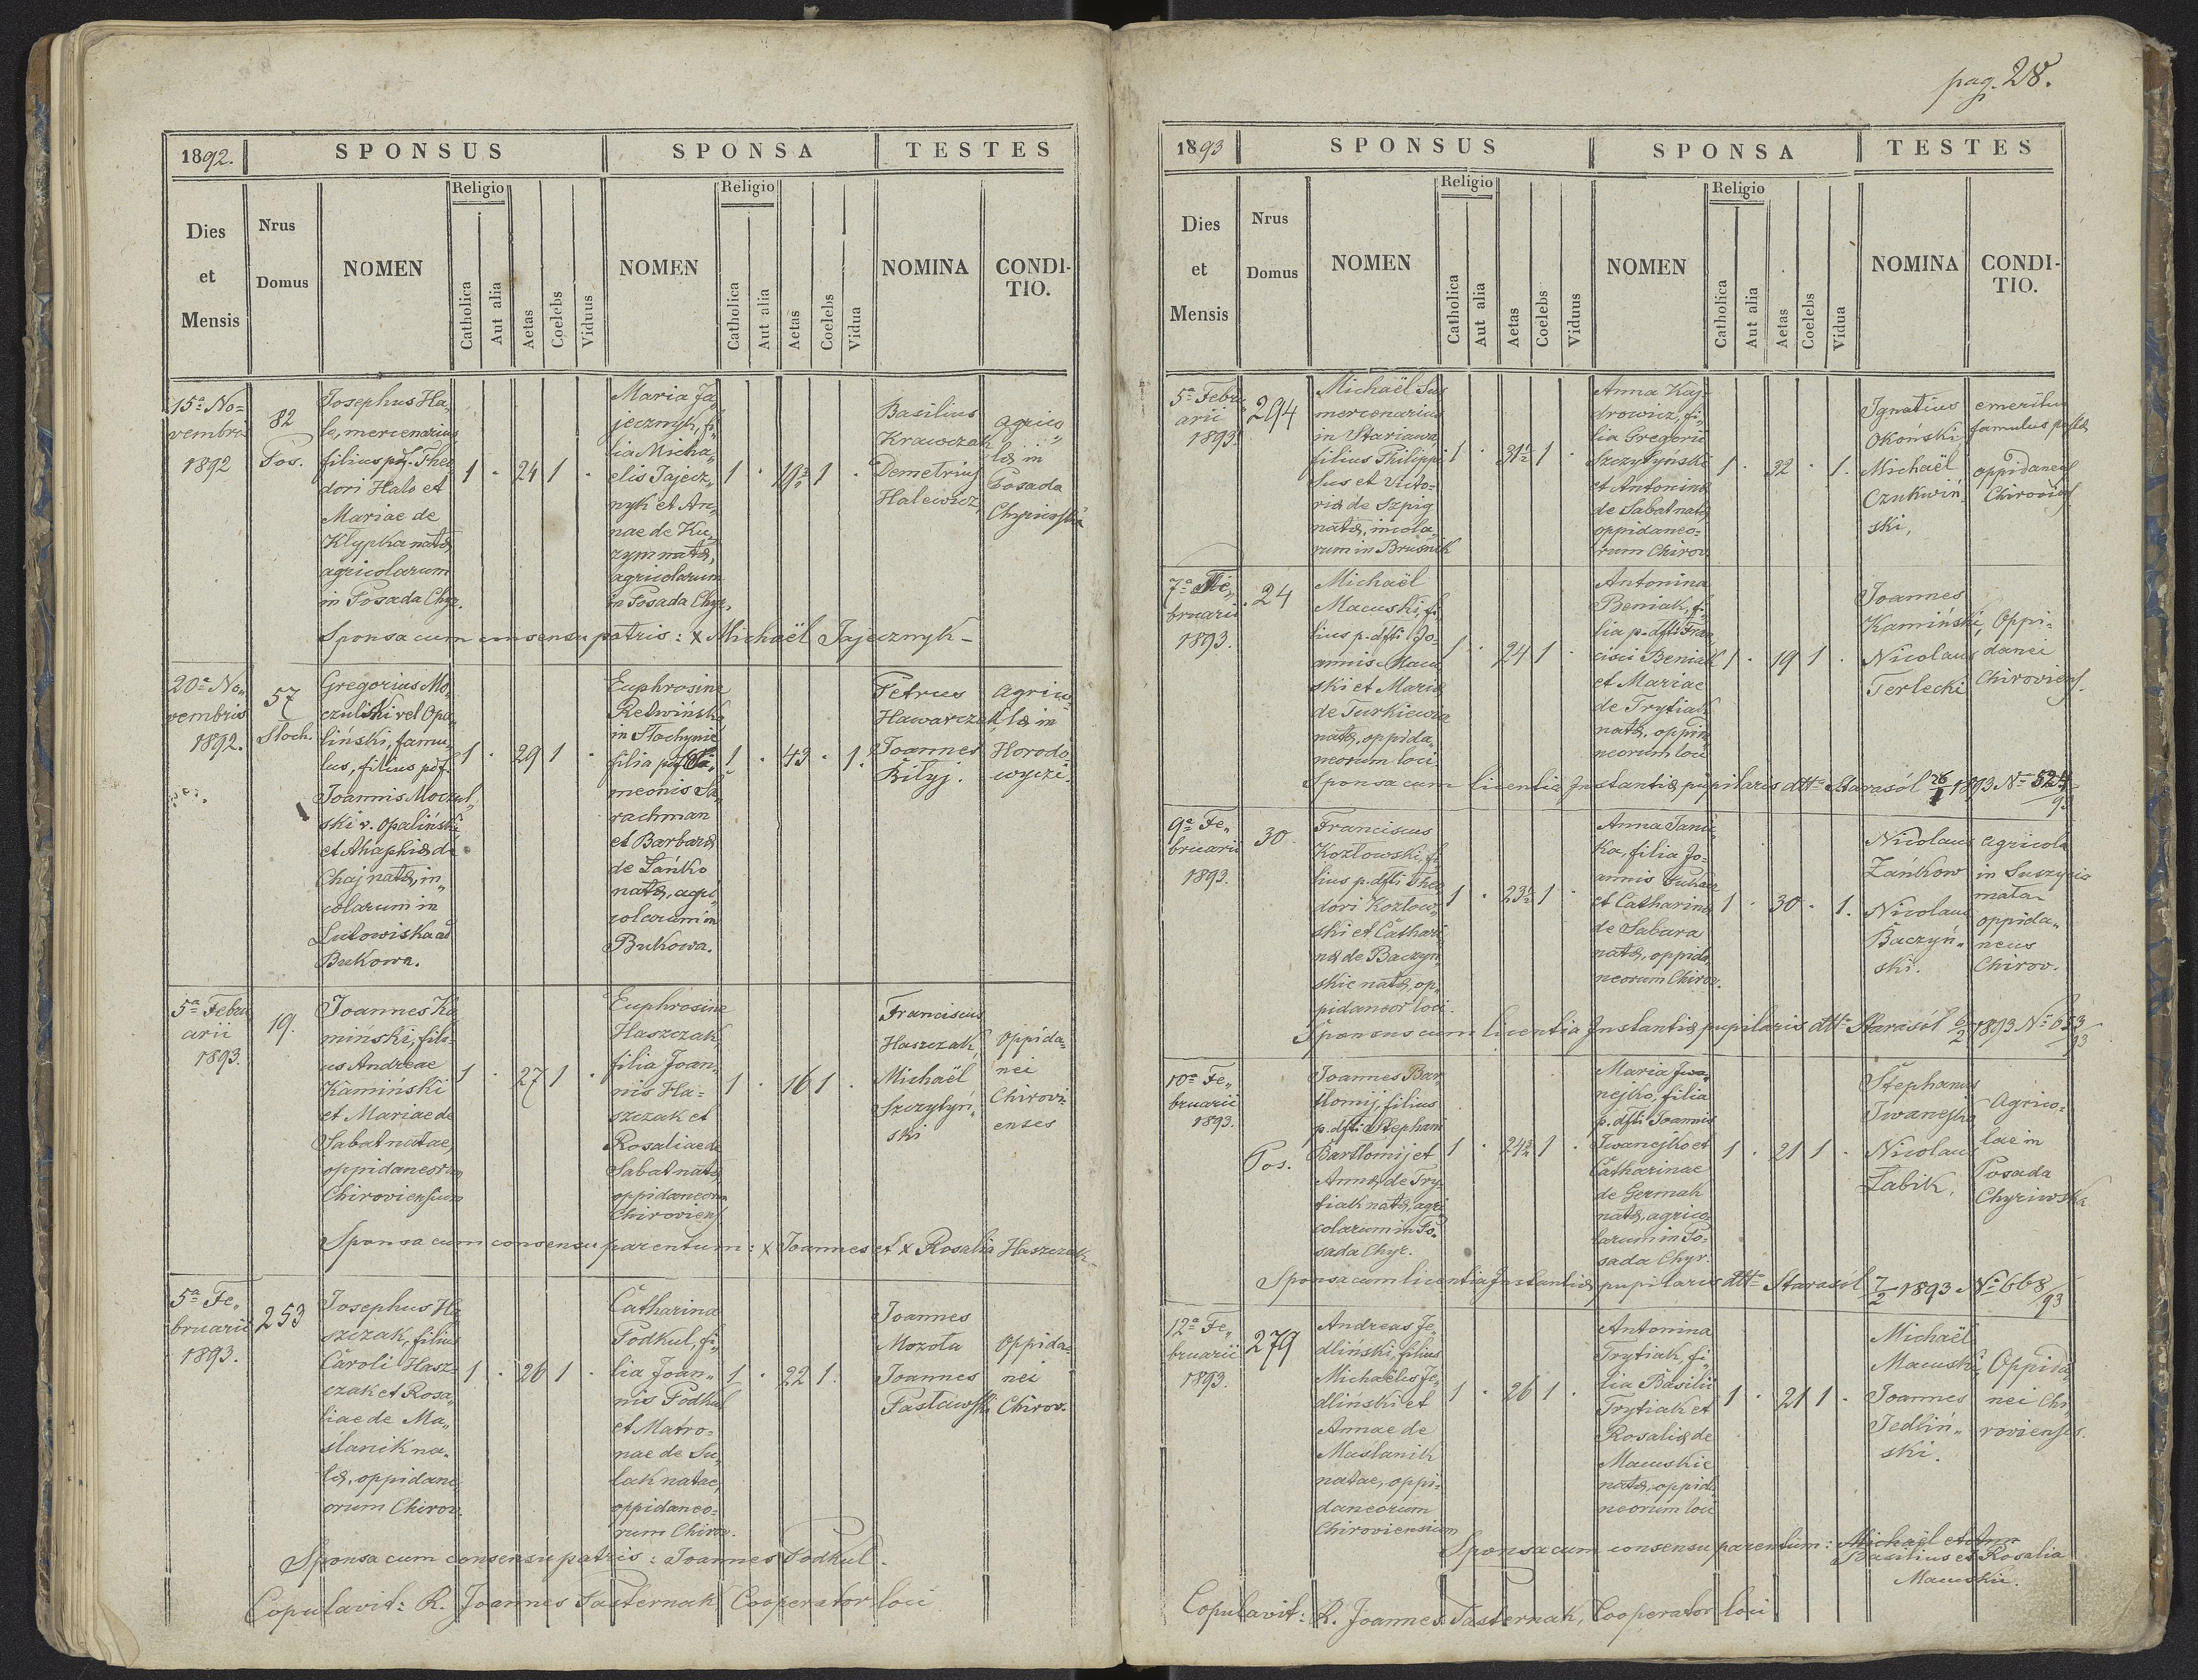 1892.
SPONSUS
SPONSA
TESTES
Dies
et
Mensis
Nrus
Domus
NOMEN
Religio
Catholica
Aut alia
Aetas
Coelebs
Viduus
NOMEN
Religio
Catholica
Aut alia
Aetas
Coelebs
Vidua
NOMINA
CONDI-
TIO.
15ª No=
vembris
1892
82
Pos.
Josephus Ha„
lo, mercenarius
filius p̄df. Theo
dori Halo et
Mariae de
Kłypka natæ
agricolarum
in Posada Chyr.
1 · 24 1 ·
Maria Ja„
jecznyk, fi„
lia Micha„
elis Jajecz„
nyk et An„
nae de Ku„
zym natæ,
agricolarum
in Posada Chyr.
1 · 19 1 ·
Basilius
Krawczak
Demetrius
Halewicz
agrico„
læ in
Posada
Sponsa cum consensu patris: x Michaël Jajecznyk –
20ª No„
vembris
1892.
57
Słoch.
Gregorius Mo„
czulski vel Opa„
liński, famu„
lus, filius p̄df.
Joannis Moczul„
ski v. Opaliński
et Ahaphiæ de
Chaj natæ, in„
colarum in
Lutowiska ad
Bukowa.
1 · 29 1 ·
Euphrosina
Retwińska,
in Słochynie
filia
meonis Sa„
rachman
et Barbaræ
de Sańko
natæ, agri„
colarum in
Bukowa.
1 · 43 · 1.
Petrus
Hawarczak
Joannes
Biłyj.
Agrico„
læ in
Horodo
wyczi.
5ª Febru
arii
1893.
19.
Joannes Ka
miński, fili„
us Andreae
Kamiński
et Mariae de
Sabat natae,
oppidaneorum
Chiroviensium
1 · 27 1 ·
Euphrosina
Haszczak,
filia Joan„
nis Ha=
szczak et
Rosaliae de
Sabat natæ,
oppidaneorum
Chiroviens.
1 · 16 1 ·
Franciscus
Haszczak,
Michaël
Szczytyń„
ski
Oppida=
nei
Chirovi=
enses
Sponsa cum consensu parentum: x Joannes et x Rosalia Haszczak
5ª Fe„
bruarii
1893.
253
Josephus Ha
szczak, filius
Caroli Hasz=
czak et Rosa„
liae de Ma„
ślanik na„
tæ, oppidane
orum Chirov.
1 · 26 1 ·
Catharina
Podkul, fi„
lia Joan„
nis Podkul
et Matro=
nae de Su„
łak natae,
oppidaneo=
rum Chirov.
1 · 22 1 ·
Joannes
Mozoła
Joannes
Pasławski
Oppida=
nei
Chirov.
Sponsa cum consensu patris: Joannes Podkul.
Copulavit: R. Joannes Pasternak Cooperator loci
pag. 28.
1893
SPONSUS
SPONSA
TESTES
Dies
et
Mensis
Nrus
Domus
NOMEN
Religio
Catholica
Aut alia
Aetas
Coelebs
Viduus
NOMEN
Religio
Catholica
Aut alia
Aetas
Coelebs
Vidua
NOMINA
CONDI-
TIO.
5ª Febru
arii
1893.
294
Michaël Sus
mercenarius
in Stariawa,
filius Philippi
Sus et Victo=
riæ de Szpig
natæ, incola„
rum in Brusnik
1 · 31½ 1 ·
Anna Kay=
drowicz, fi„
lia Gregorii
Szczytyński
et Antoninæ
de Sabat natæ
oppidaneo=
rum Chirov.
1 · 22 · 1.
Ignatius
Okoński
Michaël
Czukwiń„
ski,
emeritus
famulus
oppidanens
Chiroviens.
7ª Fe„
bruarii
1893.
24
Michaël
Macuski, fi„
lius p. dfti Jo=
annis Macu
ski et Mariæ
de Turkiewicz
natæ, oppida„
neorum loci
1 · 24 1 ·
Antonina
Beniak, fi„
lia p. dfti Fran
cisci Beniak
et Mariae
de Trytiak
natæ, oppida
neorum loci
1 · 19 1 ·
Joannes
Kamiński,
Nicolaus
Terlecki
Oppi=
danei
Chiroviens.
Sponsa cum licentia Instantiæ pupilaris dtto Starasól 26/1 1893 Nº 524/93
9ª Fe„
bruarii
1893.
30.
Franciscus
Kozłowski, fi
lius p. dfti Theo
dori Kozłow„
ski et Cathari
næ de Baczyń„
skie natæ, op„
pidaneor loci.
1 · 23½ 1 ·
Anna
ka, filia Jo=
annis
et Catharinæ
de Sabara
natæ, oppida
neorum Chirov.
1 · 30 · 1.
Nicolaus
Zańkow
Nicolaus
Baczyń„
ski.
agricola
in Suszyca
mała
oppida„
neus
Chirov.
Sponsus cum licentia Instantiæ pupilaris dtto Starasól 6/2 1893 Nº 653/93
10ª Fe„
bruarii
1893.
Pos.
Joannes Bar
tłomij, filius
p. dfti Stephani
Bartłomij et
Annæ de Try„
tiak natæ, agri
colarum in Po„
sada Chyr.
1 · 24 1 ·
Maria Iwa„
nejko, filia
p. dfti Joannis
Iwanejko et
Catharinae
de Germak
natæ, agrico„
larum in Po=
sada Chyr.
1 · 21 1 ·
Stephanus
Iwanejko
Nicolaus
Łabik.
Agrico=
lae in
Posada
Chyriwska
Sponsa cum licentia Instantiæ pupilaris dtto Starasól 7/2 1893 Nº 668/93
12ª Fe„
bruarii
1893.
279
Andreas Je„
dliński, filius
Michaëlis Je„
dliński et
Annae de
Maślanik
natae, oppi=
daneorum
Chiroviensium
1 · 26 1 ·
Antonina
Trytiak, fi„
lia Basilii
Trytiak et
Rosaliæ de
Macuskie
natæ, oppida
neorum loci
1 · 21 1 ·
Michaël
Macuski,
Joannes
Jedliń„
ski.
Oppida„
nei Chi„
rovienses.
Sponsa cum consensu parentum: Michaël et Anna
Basilius et Rosalia
Macuskie.
Copulavit: R. Joannes Pasternak, Cooperator loci